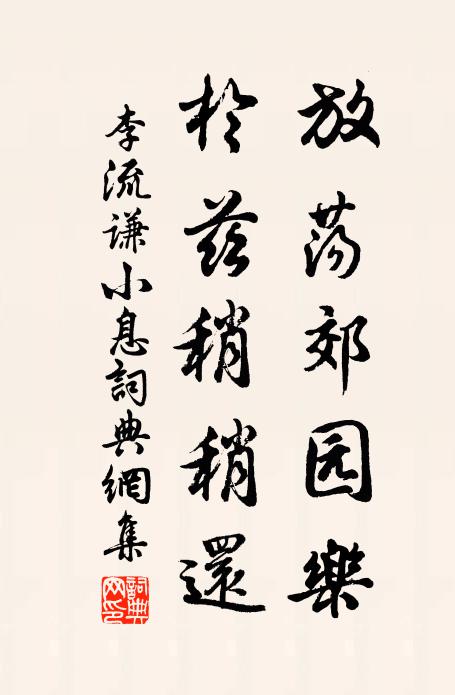 放荡郊园樂
於兹稍稍還
李流谦小息詞典網集
詞典